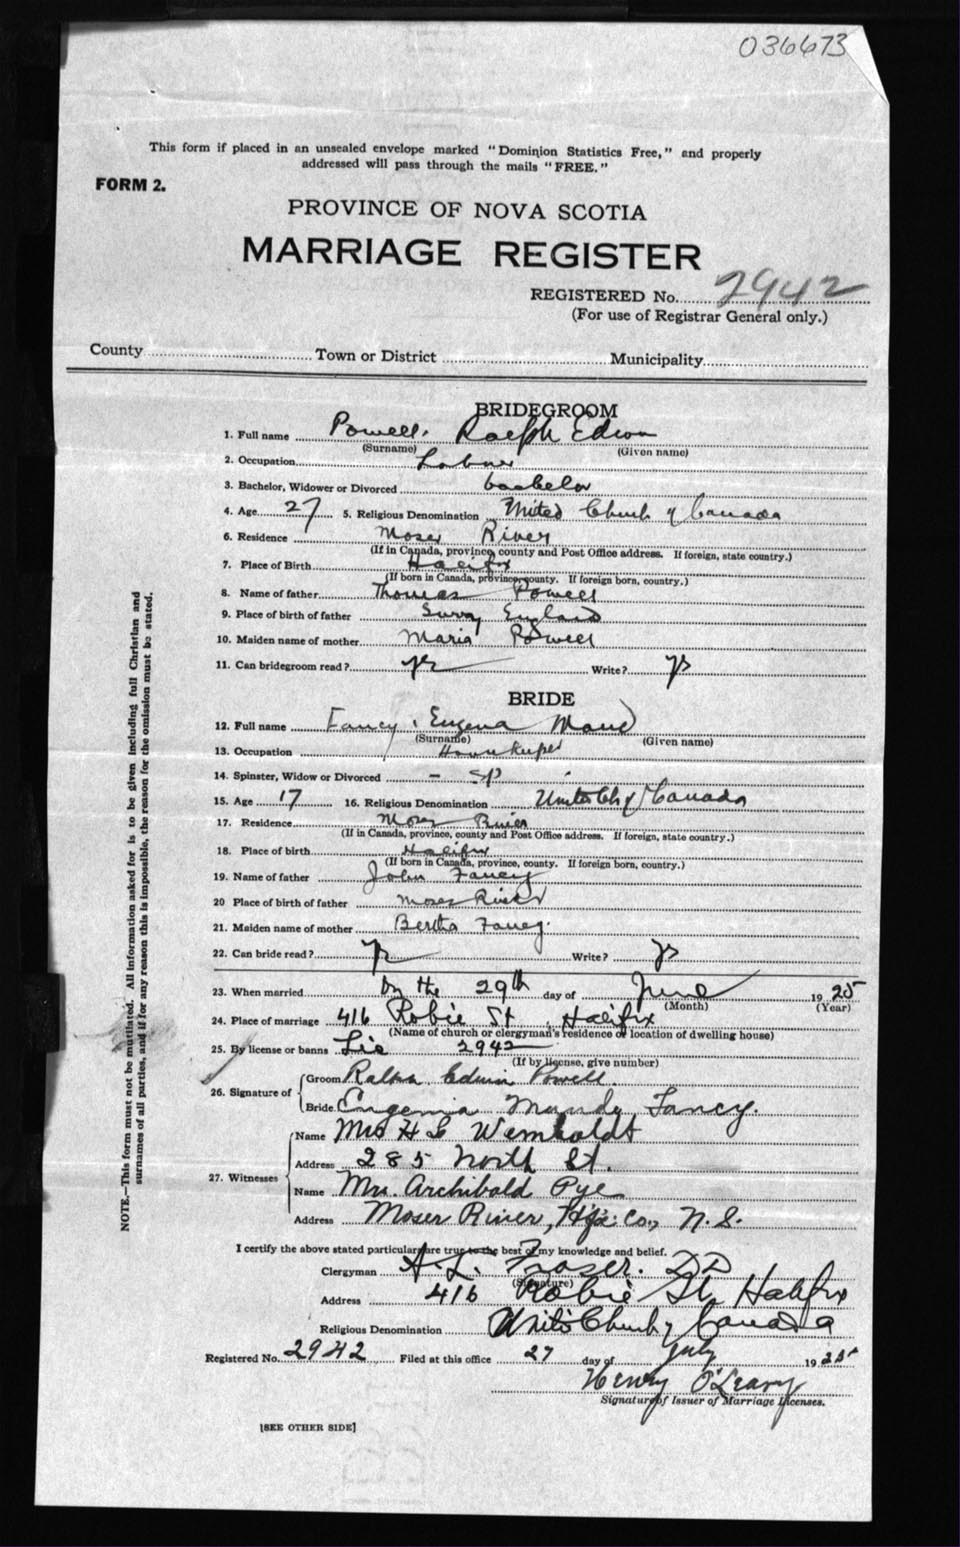 036673
This form if placed in an unsealed envelope marked "Dominion Statistics Free," and properly
addressed will pass through the mails "FREE."
FORM 2.
PROVINCE OF NOVA SCOTIA
MARRIAGE REGISTER
REGISTERED No. 2942
(For use of Registrar General only.)
County Town or District Municipality
BRIDEGROOM
1. Full name Powell, Ralph Edwin
(Surname) (Given name)
2. Occupation Labour
3. Bachelor, Widower or Divorced bachelor
4. Age 27 5. Religious Denomination United Church of Canada
6. Residence Moser River
(If in Canada, province, county and Post Office address. If foreign, state country.)
7. Place of Birth Halifx
(If born in Canada, province, county. If foreign born, country.)
8. Name of father Thomas Powell
9. Place of birth of father Surry England
10. Maiden name of mother Maria Powell
11. Can bridegroom read? yes Write? yes
BRIDE
12. Full name Fancy, Eugena Maud
(Surname) (Given name)
13. Occupation Housekeeper
14. Spinster, Widow or Divorced - sp
15. Age 17 16. Religious Denomination United Ch of Canada
17. Residence Moser River
(If in Canada, province, county and Post Office address. If foreign, state country.)
18. Place of birth Halifx
(If born in Canada, province, county. If foreign born, country.)
19. Name of father John Fancy
20 Place of birth of father Moser River
21. Maiden name of mother Bertha Fancy.
22. Can bride read? yes Write? yes
23. When married on the 29th day of June 1925
(Month) (Year)
24. Place of marriage 416 Robie St, Halifx
(Name of church or clergyman's residence or location of dwelling house)
25. By license or banns Lic 2942
(If by license, give number)
26. Signature of
Groom Ralph Edwin Powell.
Bride Eugenia Maudy Fancy.
27. Witnesses
Name Mrs H G Wamboldt
Address 285 North St.
Name Mrs. Archibald Pye
Address Moser River, Hfx. Co., N. S.
I certify the above stated particulars are true to the best of my knowledge and belief.
Clergyman A. L. Fraser. DD
(Signature)
Address 416 Robie St, Halifx
Religious Denomination United Church of Canada
Registered No. 2942 Filed at this office 27 day of July 1925
Henry O'Leary
Signature of Issuer of Marriage Licenses.
[SEE OTHER SIDE]
NOTE.—This form must not be mutilated. All information asked for is to be given including full Christian and
surnames of all parties, and if for any reason this is impossible, the reason for the omission must be stated.